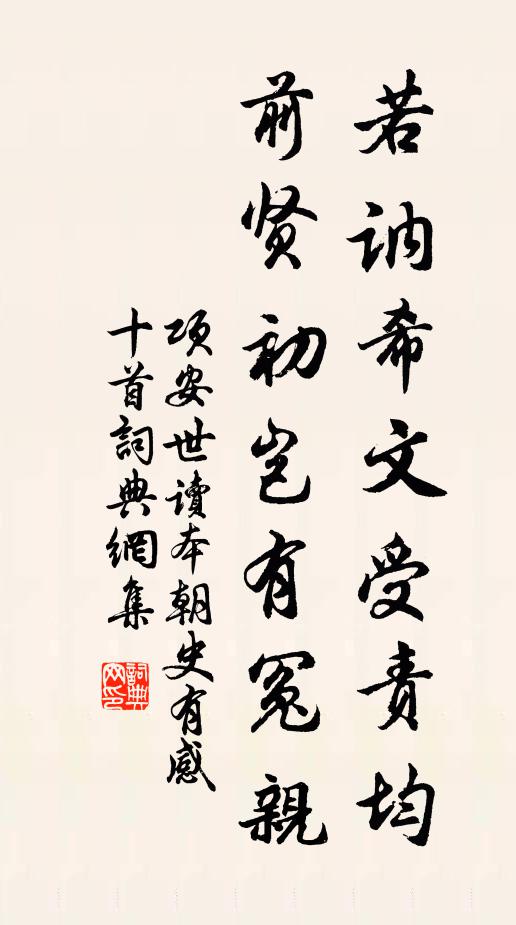 若訥希文受責均
前贤初岂有冤親
項安世讀本朝史有感
十首詞典網集
詞典
网印